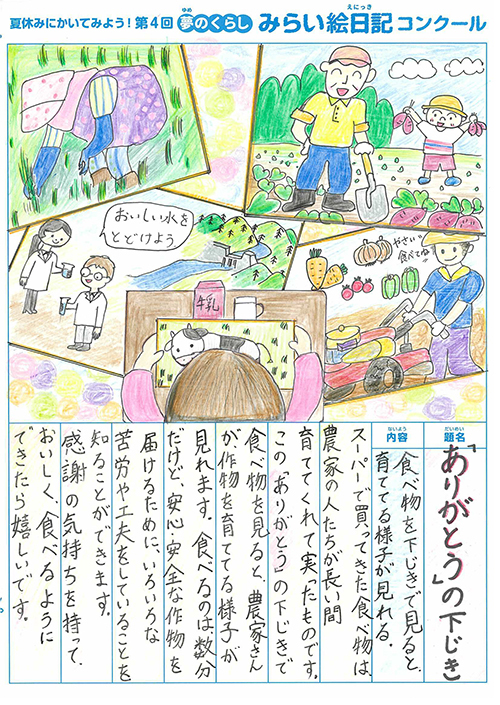 夏休みにかいてみよう!第4回 夢のくらし みらい絵日記 コンクール
ゆめ
えにっき
おいしい水を
とどけよう
牛乳
やさい
食べてね
だいめい
題名
「ありがとう」の下じき
ないよう
内容
食べ物を下じきで見ると、
育ててる様子が見れる。
スーパーで買ってきた食べ物は、
農家の人たちが長い間
育ててくれて実ったものです。
この「ありがとう」の下じきで
食べ物を見ると、農家さん
が作物を育ててる様子が
見れます。食べるのは、数分
だけど、安心安全な作物を
届けるために、いろいろな
苦労や工夫をしていることを
知ることができます。
感謝の気持ちを持って、
おいしく、食べるように
できたら嬉しいです。